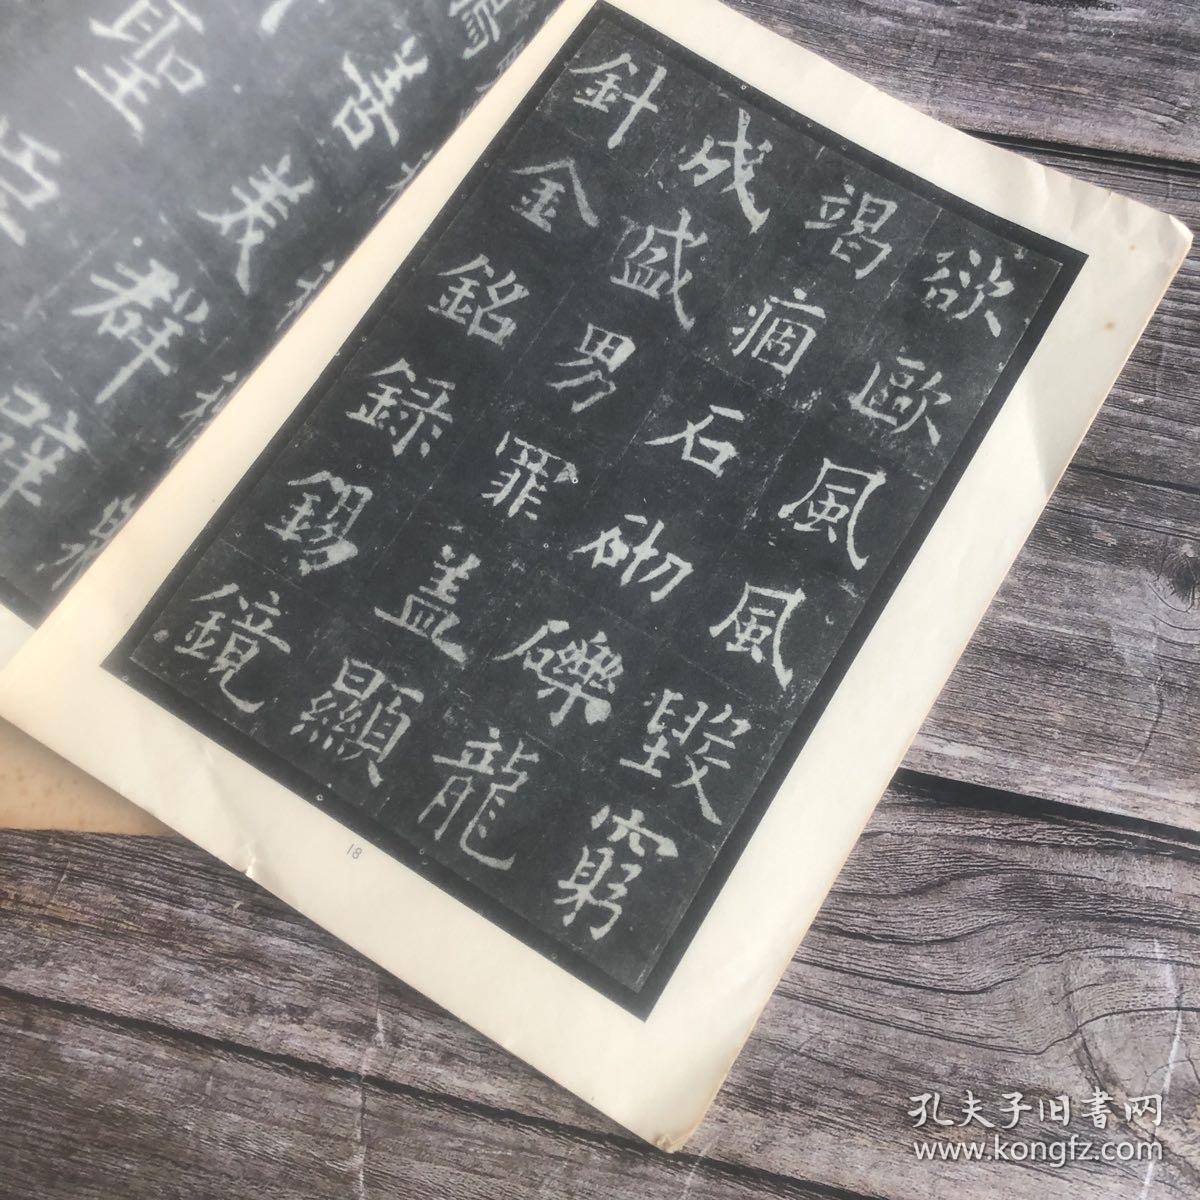 欲歐風風毀窮
竭痼石砌礫龍
成盛男罪蓋顯
針金銘録錫鏡
18
善美群
聖
孔夫子旧書网
www.kongfz.com